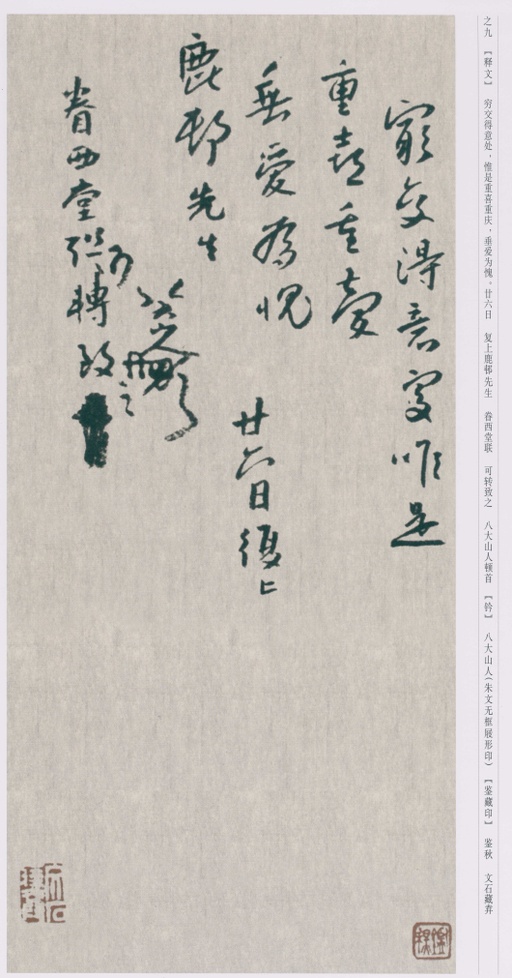 之九 【释文】 穷交得意处，惟是重喜重庆，垂爱为愧。廿六日 复上鹿邨先生 眷西堂联 可转致之 八大山人顿首 【钤】 八大山人（朱文无框屐形印） 【鉴藏印】 鉴秋 文石藏弆
窮交得意處唯是
重喜重慶
垂愛為愧
廿六日復上
鹿邨先生
八大山人頓首
眷西堂聯可轉致之